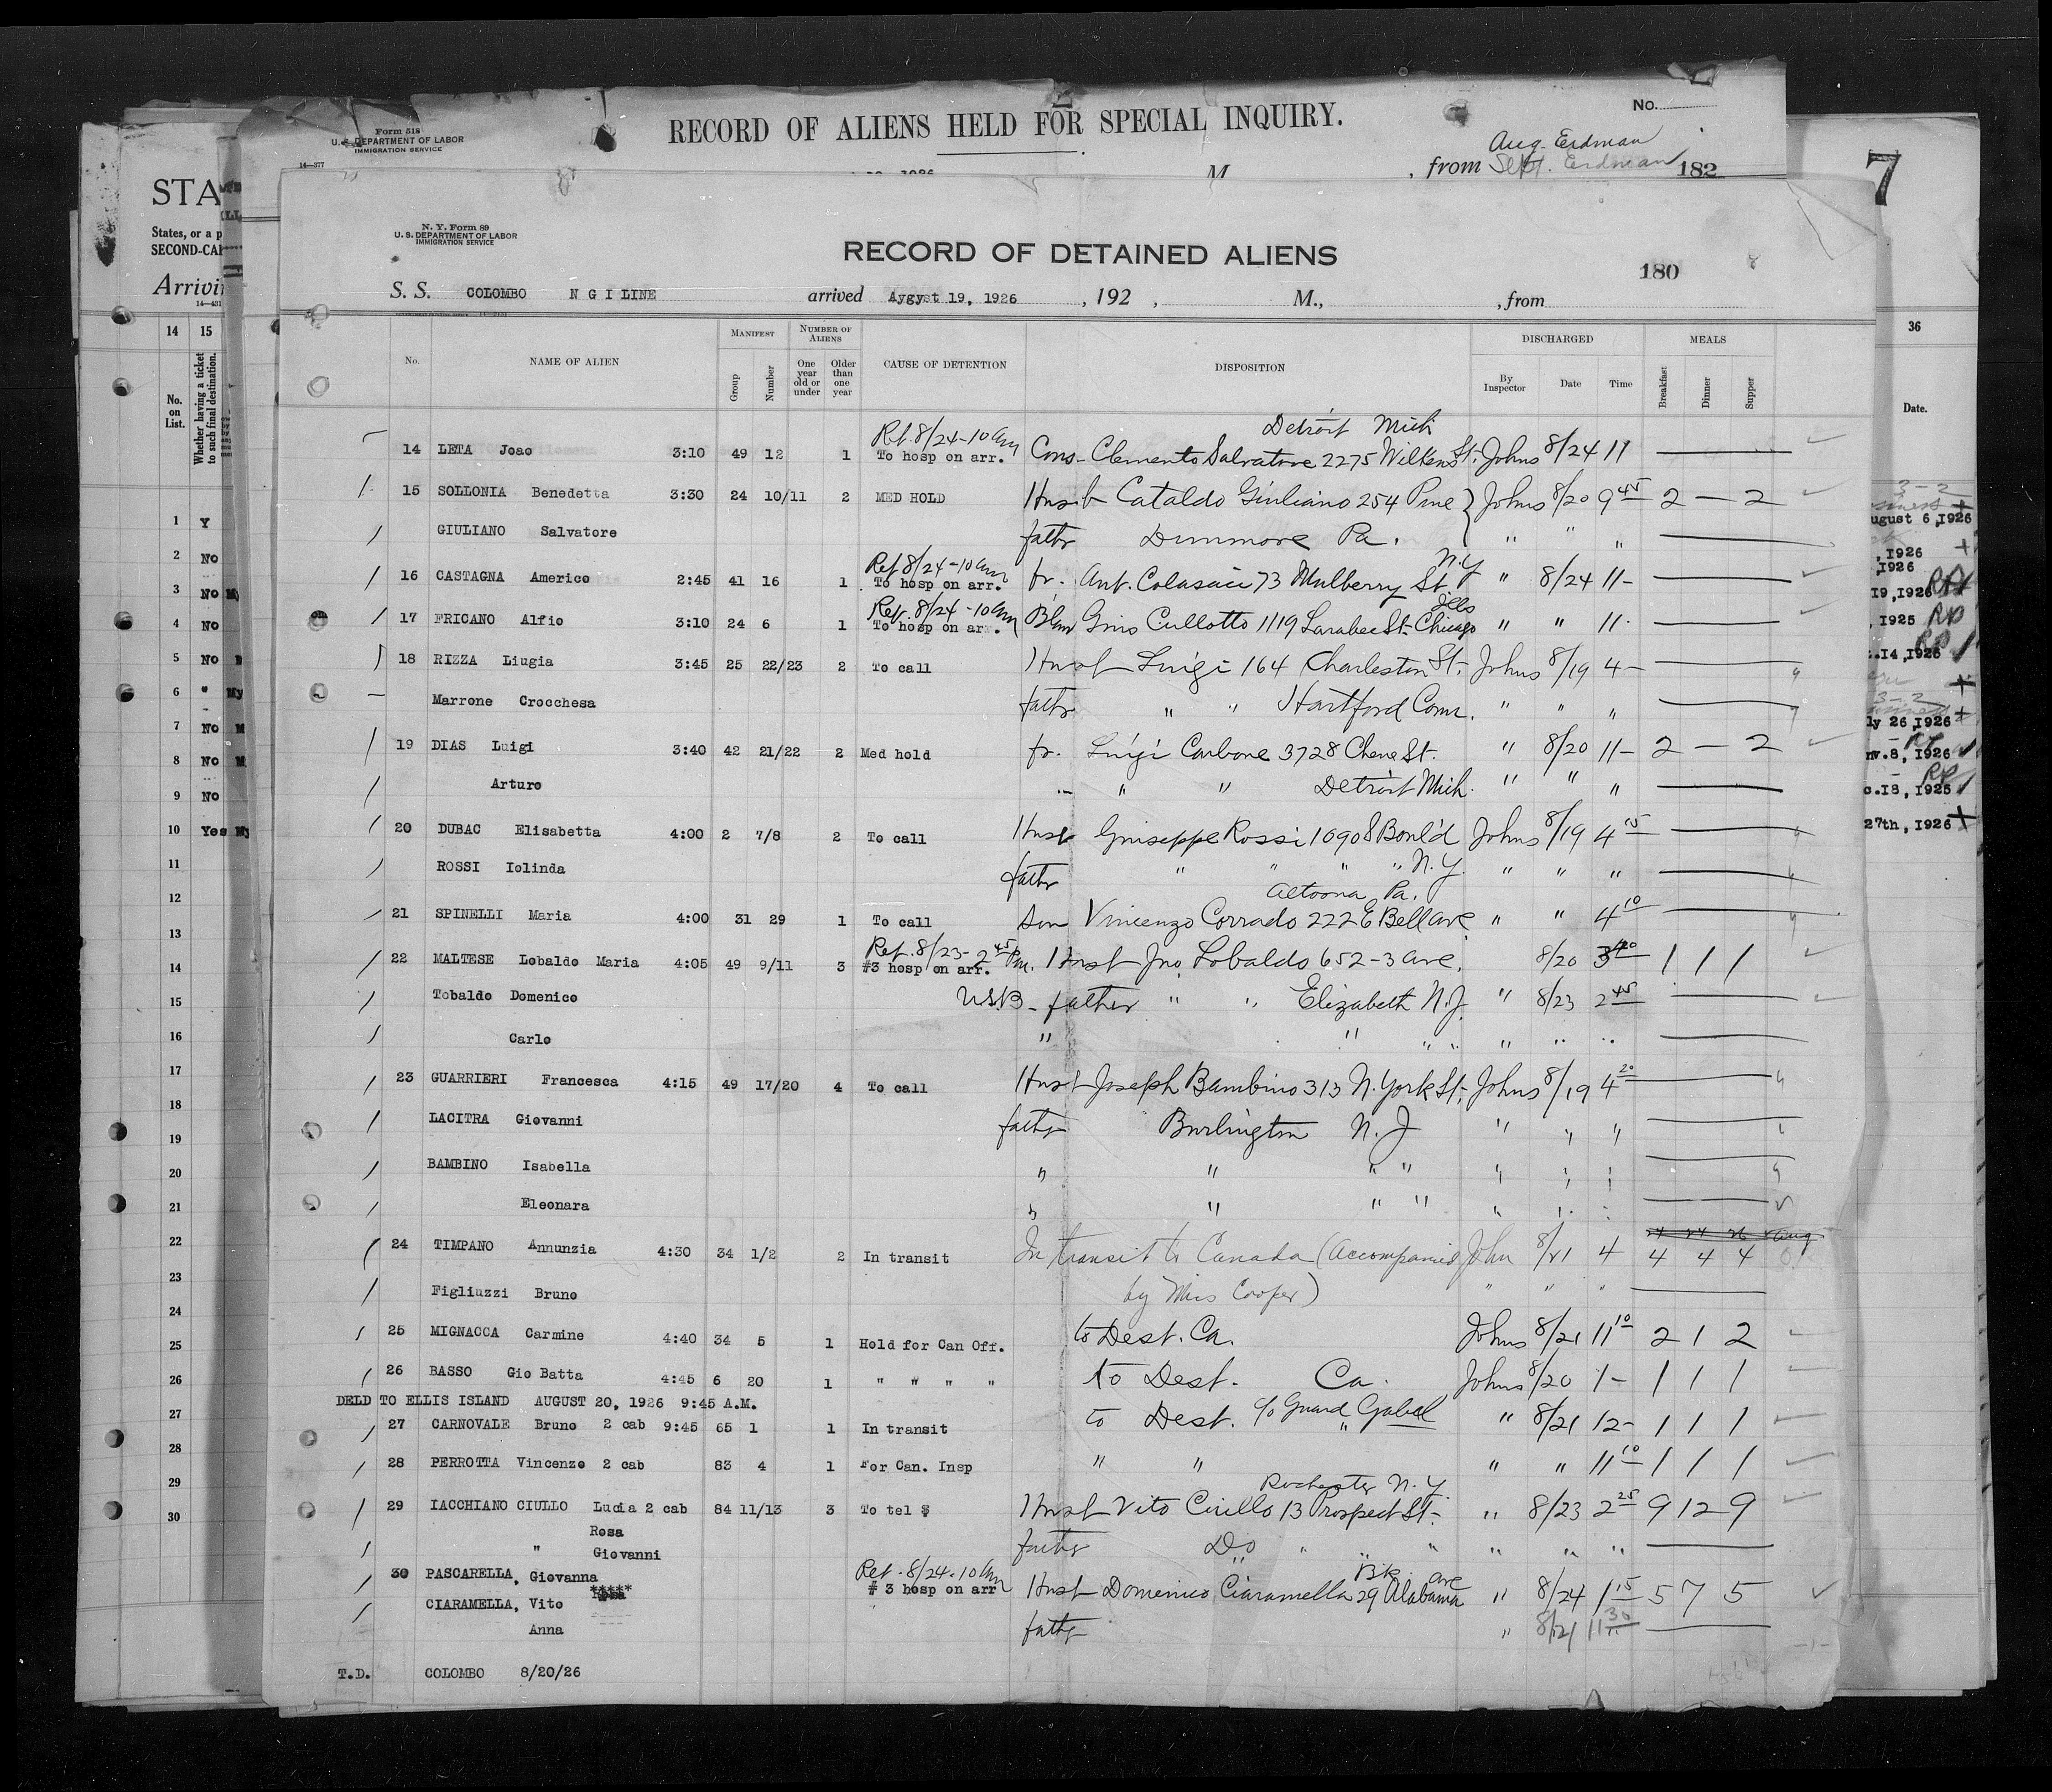 Form 518
U. S. DEPARTMENT OF LABOR
IMMIGRATION SERVICE
14—377
RECORD OF ALIENS HELD FOR SPECIAL INQUIRY.
No.
Aug. Erdman
M , from Sept. Erdman 182
STA
States, or a p
SECOND-CA
Arrivi
14—431
7
N. Y. Form 89
U. S. DEPARTMENT OF LABOR
IMMIGRATION SERVICE
RECORD OF DETAINED ALIENS
180
S. S. COLOMBO N G I LINE arrived Aygyst 19, 1926 , 192 , M., , from
No. NAME OF ALIEN MANIFEST Group Number NUMBER OF ALIENS One year old or under Older than one year CAUSE OF DETENTION DISPOSITION DISCHARGED By Inspector Date Time MEALS Breakfast Dinner Supper
Detroit Mich
Ret. 8/24-10 am
14 LETA Joao 3:10 49 12 1 To hosp on arr. Cons- Clemento Salvatore 2275 Wilkens St. Johns 8/24 11
15 SOLLONIA Benedetta 3:30 24 10/11 2 MED HOLD Husb Cataldo Giuliano 254 Pine Johns 8/20 9 45 2 — 2
GIULIANO Salvatore fathr Dunmore Pa. " " "
Ret 8/24-10 am N.Y
16 CASTAGNA Americo 2:45 41 16 1 To hosp on arr. fr. Ant. Colasaci 73 Mulberry St " 8/24 11-
Ret. 8/24-10 am Ills
17 FRICANO Alfio 3:10 24 6 1 To hosp on arr. Blaw Gino Cullotto 1119 Larabee St- Chicago " " 11.
18 RIZZA Liugia 3:45 25 22/23 2 To call Husb Luigi 164 Charleston St. Johns 8/19 4-
Marrone Crocchesa fathr " " Hartford Conn. " " "
19 DIAS Luigi 3:40 42 21/22 2 Med hold fr. Luigi Carbone 3728 Chene St. " 8/20 11- 2 — 2
Arturo " " Detroit Mich. " " "
20 DUBAC Elisabetta 4:00 2 7/8 2 To call Husb Guiseppe Rossi 10908 Boul'd Johns 8/19 4 25
ROSSI Iolinda fathr " " " N.Y. " " "
Altoona Pa.
21 SPINELLI Maria 4:00 31 29 1 To call Son Vincenzo Corrado 222 E Bell ave " " 4 10
Ret. 8/23- 2 45 Pm.
22 MALTESE Lobaldo Maria 4:05 49 9/11 3 #3 hosp on arr. Husb Jno. Lobaldo 652-3 ave. 8/20 3 20 1 1 1
Tobaldo Domenico USB - father " " Elizabeth N.J. " 8/23 2 45
Carlo " " " " " " "
23 GUARRIERI Francesca 4:15 49 17/20 4 To call Husb Joseph Bambino 313 N. York St. Johns 8/19 4 20
LACITRA Giovanni fathr Burlington N.J " " "
BAMBINO Isabella " " " " " " "
Eleonara " " " " " " "
24 TIMPANO Annunzia 4:30 34 1/2 2 In transit In transit to Canada (Accompanied John 8/21 4 4 4 4
Figliuzzi Bruno by Miss Cooper) " " "
25 MIGNACCA Carmine 4:40 34 5 1 Hold for Can Off. to Dest. Ca. Johns 8/21 11 10 2 1 2
26 BASSO Gio Batta 4:45 6 20 1 " " " " to Dest. Ca. Johns 8/20 1- 1 1 1
DELD TO ELLIS ISLAND AUGUST 20, 1926 9:45 A.M.
27 CARNOVALE Bruno 2 cab 9:45 65 1 1 In transit to Dest. c/o Guard Gabel " 8/21 12- 1 1 1
28 PERROTTA Vincenzo 2 cab 83 4 1 For Can. Insp " " " " " 11 10 1 1 1
Rochester N.Y.
29 IACCHIANO CIULLO Lucia 2 cab 84 11/13 3 To tel $ Husb Vito Cirillo 13 Prospect St- " 8/23 2 25 9 12 9
Rosa
" Giovanni father Do " " " " " "
Ret. 8/24-10 am Bk. ave
30 PASCARELLA, Giovanna # 3 hosp on arr Husb Domenico Ciaramella 29 Alabama " 8/24 1 15 5 7 5
*****
CIARAMELLA, Vito
Anna fathr " 8/21 11 30
T.D. COLOMBO 8/20/26
14 15
No. on List.
Whether having a ticket to such final destination.
1 Y
2 No
3 No My
4 No
5 No
6 " My
7 No M
8 No M
9 No
10 Yes My
11
12
13
14
15
16
17
18
19
20
21
22
23
24
25
26
27
28
29
30
36
Date.
3-2
ugust 6, 1926
, 1926
, 1926
19, 1926
, 1925
.14, 1926
3-2
ly 26, 1926
nv. 8, 1926
c. 18, 1925
27th, 1926